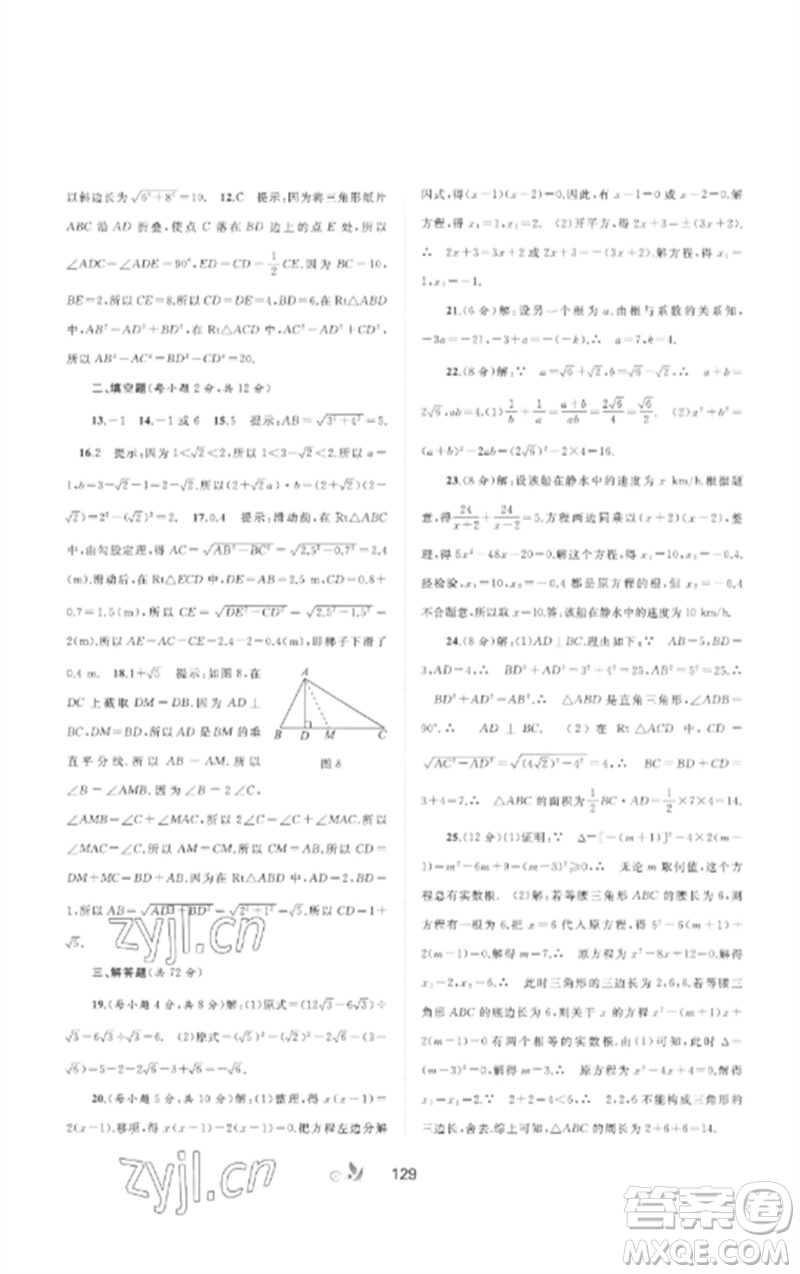 以斜边长为√(6²+8²)=10. 12.C 提示:因为将三角形纸片
ABC 沿 AD 折叠,使点 C 落在 BD 边上的点 E 处,所以
∠ADC=∠ADE=90°,ED=CD=1/2CE.因为 BC=10,
BE=2,所以 CE=8,所以 CD=4,BD=6.在 Rt△ABD
中,AB²=AD²+BD²,在 Rt△ACD 中,AC²=AD²+CD²,
所以 AB²-AC²=BD²-CD²=20.
二、填空题(每小题2分,共12分)
13.-1 14.-1或6 15.5 提示:AB=√(3²+4²)=5.
16.2 提示:因为1<√2<2,所以1<3-√2<2,所以 a=
1,b=3-√2-1=2-√2,所以(2+√2a)·b=(2+√2)(2-
√2)=2²-(√2)²=2 17.0.4 提示:滑动前,在 Rt△ABC
中,由勾股定理,得 AC=√(AB²-BC²)=√(2.5²-0.7²)=2.4
(m).滑动后,在 Rt△ECD 中,CD=CB+BD=0.8+
0.7=1.5(m),所以 CE=√(DE²-CD²)=√(2.5²-1.5²)=2
(m),所以 AE=AC-CE=2.4-2=0.4(m),即梯子下滑了
0.4 m. 18.1+√5 提示:如图8,在
DC 上截取 DM=DB,因为 AD⊥
BC,BD=DM,所以 AD 是 BM 的垂
直平分线.所以 AM=AB,所以
∠AMB=∠B=2∠C.因为
∠AMB=∠C+∠MAC,所以∠C+∠MAC=2∠C,所以
∠MAC=∠C,所以 AM=CM,所以 AB=CM.因为 BD=
1,所以 AB=√(AD²+BD²)=√(2²+1²)=√5,所以 CD=1+
√5.
A
B D M C
图8
三、解答题(共72分)
19.(每小题4分,共8分)解:(1)原式=(12√3-6√3)÷
√3=6√3÷√3=6. (2)原式=(√5)²-(√2)²-2√6÷
√6)=5-2-2√6=3-
√6.
20.(每小题5分,共10分)解:(1)整理,得 x(x-1)=
2(x-1).移项,得 x(x-1)-2(x-1)=0.把方程左边分解
因式,得(x-1)(x-2)=0.∴ x-1=0或 x-2=0.解
方程,得 x₁=1,x₂=2. (2)开平方,得2x+3=±(3x+2).
∴ 2x+3=3x+2或2x+3=-3x-2.解方程,得 x₁=
1,x₂=-1.
21.(6分)解:设另一个根为 a.由根与系数的关系知,
-3a=-21,-3+a=-(-k).∴ a=7,k=4.
22.(8分)解:∵ a=√6+√2,b=√6-√2,∴ a+b=
2√6,ab=4.(1)1/b+1/a=(a+b)/ab=2√6/4=√6/2. (2)a²+b²=
(a+b)²-2ab=(2√6)²-2×4=16.
23.(8分)解:设该船在静水中的速度为 x km/h.根据题
意,得24/(x+2)+24/(x-2)=5.方程两边同乘以(x+2)(x-2),整
理,得5x²-48x-20=0.解方程,得 x₁=10,x₂=-0.4.
经检验,x₁=10,x₂=-0.4都是原方程的根,但 x=-0.4
不合题意,∴ x=10.答:该船在静水中的速度为10 km/h.
24.(8分)解:(1)AD⊥BC.理由如下:∵ AB=5,BD=
3,AD=4,∴ BD²+AD²=3²+4²=25,AB²=5²=25.∴
BD²+AD²=AB².∴ △ABD 是直角三角形,∠ADB=
90°.∴ AD⊥BC. (2)在 Rt△ACD 中,CD=
√(AC²-AD²)=√((4√2)²-4²)=4.∴ BC=BD+CD=
3+4=7.∴ △ABC 的面积为1/2BC·AD=1/2×7×4=14.
25.(12分)(1)证明:∵ Δ=[-(m+1)]²-4×2(m-
1)=m²-6m+9=(m-3)²≥0,∴ 无论 m 取何值,这个方
程总有实数根. (2)解:若等腰三角形 ABC 的腰长为6,则
方程有一根为6.把 x=6代入原方程,得6²-6(m+1)+
2(m-1)=0,解得 m=7.∴ 原方程为 x²-8x+12=0,解得
x₁=2,x₂=6.∴ 此时三角形的三边长为2,6,6.若等腰三
角形 ABC 的底边长为6,则关于 x 的方程 x²-(m+1)x+
2(m-1)=0有两个相等的实数根.∴ Δ=
(m-3)²=0,解得 m=3.∴ 原方程为 x²-4x+4=0,解得
x₁=x₂=2.∵ 2+2<6,∴ 2,2,6不能构成三角形的
三边长,舍去.综上可知,△ABC 的周长为2+6+6=14.
129
zyjl.cn
zyjl.cn
答案圈
MXQE.COM